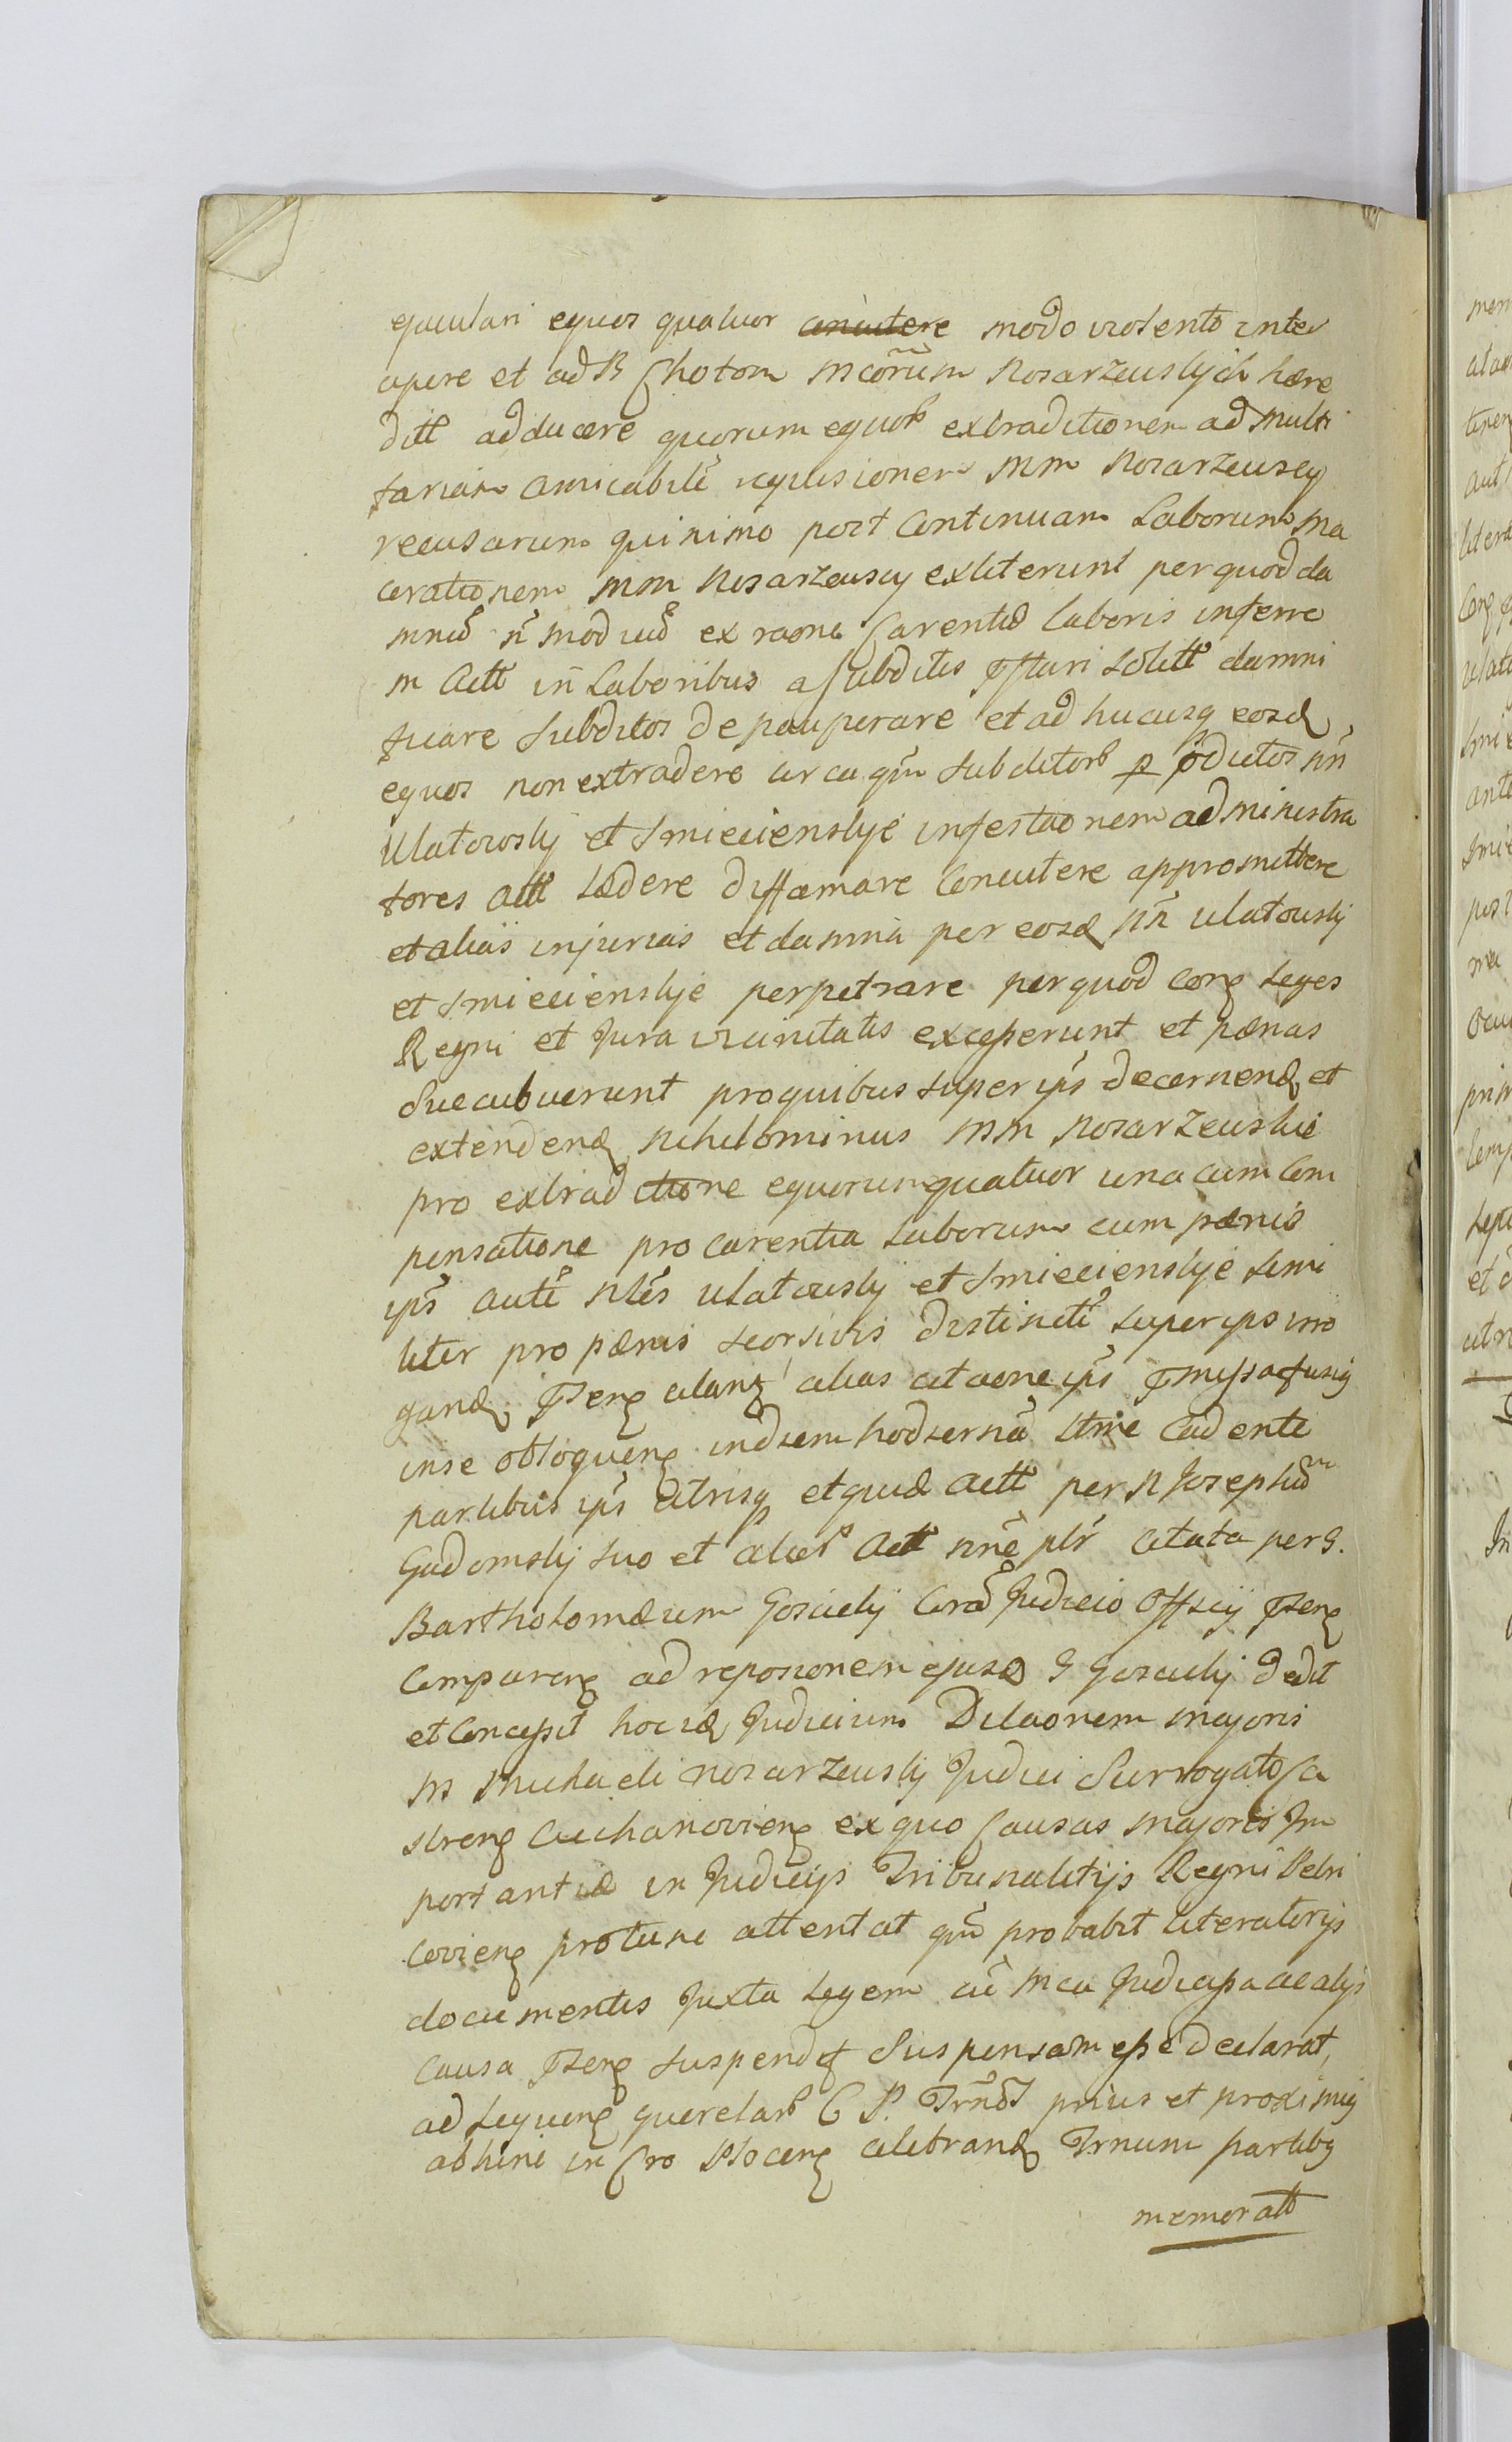 equulari equos quatuor concutere modo violento inter
cipere et ad B Chotom Mcorum Nosarzewskich hære
ditt adducere quorum equor extraditionem ad multi
fariam amicabile requisionem MM Nosarzewscy
recusarunt quinimo post continuam Laborum ma
cerationem MM Nosarzewscy extiterunt per quod da
mnu n modicu ex raone Carentiæ laboris inferre
M Actt in Laboribus a subditis pstari solitt damni
ficare subditos depauperare et ad hucusq eosd
equos non extradere circa qm subditor p pdictos NN
Ulatowsky et Smiecienskie infestaonem administra
tores Actt Lædere diffamare concutere appromittere
et alias injurias et damna per eosd NN Ulatowsky
et Smiecienskie perpetrare per quod Con Leges
Regni et Jura vicinitatis excesserunt et pænas
succubuerunt pro quibus super ips decernend et
extendend nihilominus MM Nosarzewskie
pro extraditione equorum quatuor una cum com
pensatione pro carentia Laborum cum pænis
ips aute Nles Ulatowsky et Smiecienskie simi
liter pro pænis seorsivis distincte super ips irro
gand Psen citant alias citaone ips pmissa fusig
in se obloquen in diem hodierna Ltrie cadente
partibus ips utrisq et quid Actt per N Josephum
Gadomsky suo et alior Actt nne plr citata per G.
Bartholomæum Goscicky Cora Judicio Officy Psen
Comparen ad reposionem ejusd G Goscicky dedit
et Concessit hoc id Judicium Dilaonem majoris
M Michaeli Nosarzewsky Judici Surrogato Ca
stren Ciechanovien ex quo Causas majoris Im
portantiæ in Judicys Tribunalitys Regni Petri
covien protunc attentat qm probabit literatorys
documentis Juxta Legem cu Mca Judiciis ac alys
Causa Psen suspendt Suspensam esse declarat,
ad sequen querelar C P. Trnor prius et proximig
abhinc in Cro Plocen celebrand Trnum partibg
memoratt